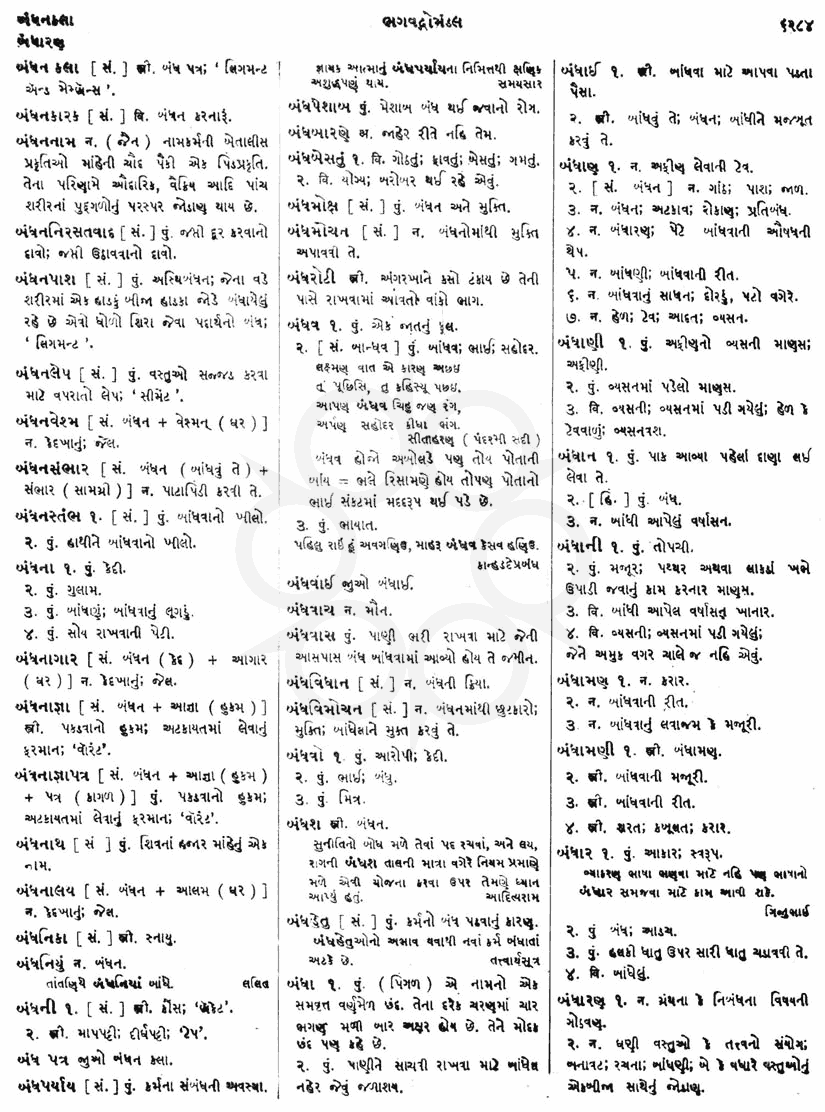 બંધનકલા
બંધારણ
ભગવદ્ગોમંડલ
૬૨૮૪
બંધન કલા [ સં. ] સ્ત્રી. બંધ પત્ર; ‘ લિગમન્ટ
ઍન્ડ મેમ્બ્રેન્સ ’.
બંધનકારક [ સં. ] વિ. બંધન કરનારૂં.
બંધનનામ ન. ( જૈન ) નામકર્મની બેતાલીસ
પ્રકૃતિઓ માંહેની ચૌદ પૈકી એક પિંડપ્રકૃતિ.
તેના પરિણામે ઔદારિક, વૈક્રિય આદિ પાંચ
શરીરનાં પુદ્ગળોનું પરસ્પર જોડાણ થાય છે.
બંધનનિરસતવાદ [ સં. ] પું. જપ્તી દૂર કરવાનો
દાવો; જપ્તી ઉઠાવવાનો દાવો.
બંધનપાશ [ સં. ] પું. અસ્થિબંધન; જેના વડે
શરીરમાં એક હાડકું બીજા હાડકા જોડે બંધાયેલું
રહે છે એવો ધોળો શિરા જેવા પદાર્થનો બંધ;
‘ લિગમન્ટ ’.
બંધનલેપ [ સં. ] પું. વસ્તુઓ સજ્જડ કરવા
માટે વપરાતો લેપ; ‘ સીમેંટ ’.
બંધનવેશ્મ [ સં. બંધન + વેશ્મન્ ( ઘર ) ]
ન. કેદખાનું; જેલ.
બંધનસંભાર [ સં. બંધન ( બાંધવું તે ) +
સંભાર ( સામગ્રી ) ] ન. પાટાપિંડી કરવી તે.
બંધનસ્તંભ ૧. [ સં. ] પું. બાંધવાનો ખીલો.
૨. પું. હાથીને બાંધવાનો ખીલો.
બંધના ૧. પું. કેદી.
૨. પું. ગુલામ.
૩. પું. બાંધણું; બાંધવાનું લૂગડું.
૪. પું. સોય રાખવાની પેટી.
બંધનાગાર [ સં. બંધન ( કેદ ) + આગાર
( ઘર ) ] ન. કેદખાનું; જેલ.
બંધનાજ્ઞા [ સં. બંધન + આજ્ઞા ( હુકમ ) ]
સ્ત્રી. પકડવાનો હુકમ; અટકાયતમાં લેવાનું
ફરમાન; ‘વૉરંટ’.
બંધનાજ્ઞાપત્ર [ સં. બંધન + આજ્ઞા ( હુકમ )
+ પત્ર ( કાગળ ) ] પું. પકડવાનો હુકમ;
અટકાયતમાં લેવાનું ફરમાન; ‘વૉરંટ’.
બંધનાથ [ સં ] પું. શિવનાં હજાર માંહેનું એક
નામ.
બંધનાલય [ સં. બંધન + આલમ ( ઘર ) ]
ન. કેદખાનું; જેલ.
બંધનિકા [ સં. ] સ્ત્રી. સ્નાયુ.
બંધનિયું ન. બંધન.
તાંતણિયે બંધનિયાં બાંધે. લલિત
બંધની ૧. [ સં. ] સ્ત્રી. કૌંસ; ‘બ્રૅકેટ’.
૨. સ્ત્રી. માપપટ્ટી; દીર્ઘપટ્ટી; ‘ટેપ’.
બંધ પત્ર જુઓ બંધન કલા.
બંધપર્યાય [ સં. ] પું. કર્મના સંબંધની અવસ્થા.
જ્ઞાયક આત્માનું બંધપર્યાયના નિમિત્તથી ક્ષણિક
અશુદ્ધપણું થાય. સમયસાર
બંધપેશાબ પું. પેશાબ બંધ થઈ જવાનો રોગ.
બંધબારણે અ. જાહેર રીતે નહિ તેમ.
બંધબેસતું ૧. વિ. ગોઠતું; ફાવતું; બેસતું; ગમતું.
૨. વિ. યોગ્ય; બરોબર થઈ રહે એવું.
બંધમોક્ષ [ સં. ] પું. બંધન અને મુક્તિ.
બંધમોચન [ સં. ] ન. બંધનોમાંથી મુક્તિ
અપાવવી તે.
બંધરોટી સ્ત્રી. અંગરખાને કસો ટંકાય છે તેની
પાસે રાખવામાં આવતો વાંકો ભાગ.
બંધવ ૧. પું. એક જાતનું ફૂલ.
૨. [ સં. બાન્ધવ ] પું. બાંધવ; ભાઈ; સહોદર.
લક્ષ્મણ વાત એ કારણ અછઇ
તૂં પૂછિસિ, તુ કહિસ્યૂ પછઇ.
આપણ બંધવ ચિહુ જણ રંગ,
અપણ સહોદર કીધા ભંગ.
સીતાહરણ ( પંદરમી સદી )
બંધવ હોએ અબોલડે પણ તોય પોતાની
બાંય = ભલે રિસામણે હોય તોપણ પોતાનો
ભાઈ સંકટમાં મદદરૂપ થઈ પડે છે.
૩. પું. ભાયાત.
પહિલુ રાઇ હૂં અવગણિઉ, માહરૂ બંધવ કેસવ હણિઉ.
કાન્હડદેપ્રબંધ
બંધવાઈ જુઓ બંધાઈ.
બંધત્રાચ ન. મૌન.
બંધત્રાસ પું. પાણી ભરી રાખવા માટે જેની
આસપાસ બંધ બાંધવામાં આવ્યો હોય તે જમીન.
બંધવિધાન [ સં. ] ન. બંધની ક્રિયા.
બંધવિમોચન [ સં. ] ન. બંધનમાંથી છુટકારો;
મુક્તિ; બાંધેલાને મુક્ત કરવું તે.
બંધવો ૧. પું. આરોપી; કેદી.
૨. પું. ભાઈ; બંધુ.
૩. પું. મિત્ર.
બંધશ સ્ત્રી. બંધન.
સુનીતિનો બોધ મળે તેવાં પદ રચવાં, અને લય,
રાગની બંધશ તાલની માત્રા વગેરે નિયમ પ્રમાણે
મળે એવી યોજના કરવા ઉપર તેમણે ધ્યાન
આપ્યું હતું. આદિત્યરામ
બંધહેતુ [ સં. ] પું. કર્મનો બંધ પડવાનું કારણ.
બંધહેતુઓનો અભાવ થવાથી નવાં કર્મ બંધાતાં
અટકે છે. તત્ત્વાર્થસૂત્ર
બંધા ૧. પું. ( પિંગળ ) એ નામનો એક
સમવૃત્ત વર્ણમેળ છંદ. તેના દરેક ચરણમાં ચાર
ભગણ મળી બાર અક્ષર હોય છે. તેને મોદક
છંદ પણ કહે છે.
૨. પું. પાણીને સાચવી રાખવા માટે બાંધેલ
નહેર જેવું જળાશય.
બંધાઈ ૧. સ્ત્રી. બાંધવા માટે આપવા પડતા
પૈસા.
૨. સ્ત્રી. બાંધવું તે; બંધન; બાંધીને મજબૂત
કરવું તે.
બંધાણ ૧. ન. અફીણ લેવાની ટેવ.
૨. [ સં. બંધન ] ન. ગાંઠ; પાશ; જાળ.
૩. ન. બંધન; અટકાવ; રોકાણ; પ્રતિબંધ.
૪. ન. બંધારણ; પેટે બાંધવાની ઔષધની
થેપ.
૫. ન. બાંધણી; બાંધવાની રીત.
૬. ન. બાંધવાનું સાધન; દોરડું, પટો વગેરે.
૭. ન. હેળ; ટેવ; આદત; વ્યસન.
બંધાણી ૧. પું. અફીણનો વ્યસની માણસ;
અફીણી.
૨. પું. વ્યસનમાં પડેલો માણસ.
૩. વિ. વ્યસની; વ્યસનમાં પડી ગયેલું; હેળ કે
ટેવવાળું; વ્યસનવશ.
બંધાન ૧. પું. પાક આવ્યા પહેલાં દાણા લઈ
લેવા તે.
૨. [ હિં. ] પું. બંધ.
૩. ન. બાંધી આપેલું વર્ષાસન.
બંધાની ૧. પું. તોપચી.
૨. પું. મજૂર; પથ્થર અથવા લાકડાં ખભે
ઉપાડી જવાનું કામ કરનાર માણસ.
૩. વિ. બાંધી આપેલ વર્ષાસન ખાનાર.
૪. વિ. વ્યસની; વ્યસનમાં પડી ગયેલું;
જેને અમુક વગર ચાલે જ નહિ એવું.
બંધામણ ૧. ન. કરાર.
૨. ન. બાંધવાની રીત.
૩. ન. બાંધવાનું લવાજમ કે મજૂરી.
બંધામણી ૧. સ્ત્રી. બંધામણ.
૨. સ્ત્રી. બાંધવાની મજૂરી.
૩. સ્ત્રી. બાંધવાની રીત.
૪. સ્ત્રી. શરત; કબૂલત; કરાર.
બંધાર ૧. પું. આકાર; સ્વરૂપ.
વ્યાકરણ ભાષા ભણવા માટે નહિ પણ ભાષાનો
બંધાર સમજવા માટે કામ આવી શકે.
ગિજુભાઈ
૨. પું બંધ; આડચ.
૩. પું. હલકી ધાતુ ઉપર સારી ધાતુ ચડાવવી તે.
૪. વિ. બાંધેલું.
બંધારણ ૧. ન. ગ્રંથના કે નિબંધના વિષયની
ગોઠવણ.
૨. ન. ઘણી વસ્તુઓ કે તત્ત્વનો સંયોગ;
બનાવટ; રચના; બાંધણી; બે કે વધારે વસ્તુઓનું
એકબીજા સાથેનું જોડાણ.